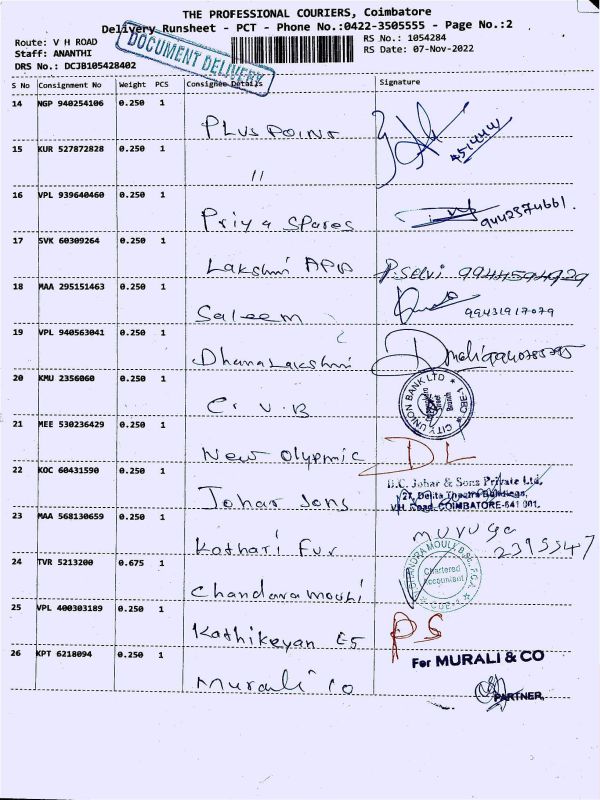 THE PROFESSIONAL COURIERS, Coimbatore
Delivery Runsheet - PCT - Phone No.:0422-3505555 - Page No.:2
Route: V H ROAD
RS No.: 1054284
Staff: ANANTHI
RS Date: 07-Nov-2022
DRS No.: DCJB105428402
DOCUMENT DELIVERY
S No Consignment No Weight PCS Consignee Details Signature
14 NGP 940254106 0.250 1
Plus Point
15 KUR 527872828 0.250 1
"
16 VPL 939640460 0.250 1
Priya Spares
17 SVK 60309264 0.250 1
Lakshmi App P.Selvi 9944594929
18 MAA 295151463 0.250 1
Saleem 99431917079
19 VPL 940563041 0.250 1
Dhanalakshmi
20 KMU 2356060 0.250 1
C. U. B CITY UNION BANK LTD
21 MEE 530236429 0.250 1
New Olypmic DL
22 KOC 60431590 0.250 1
Johar Sons
B.C. Johar & Sons Private Ltd.
27, Delita Theatre Buildings,
V.H. Road, COIMBATORE-641 001.
23 MAA 568130659 0.250 1
Kothari Fur
Muruga
2395547
24 TVR 5213200 0.675 1
Chandramouli
Chartered
Accountant
25 VPL 400303189 0.250 1
Kathikeyan ES PS
26 KPT 6218094 0.250 1
Murali Co
For MURALI & CO
PARTNER.